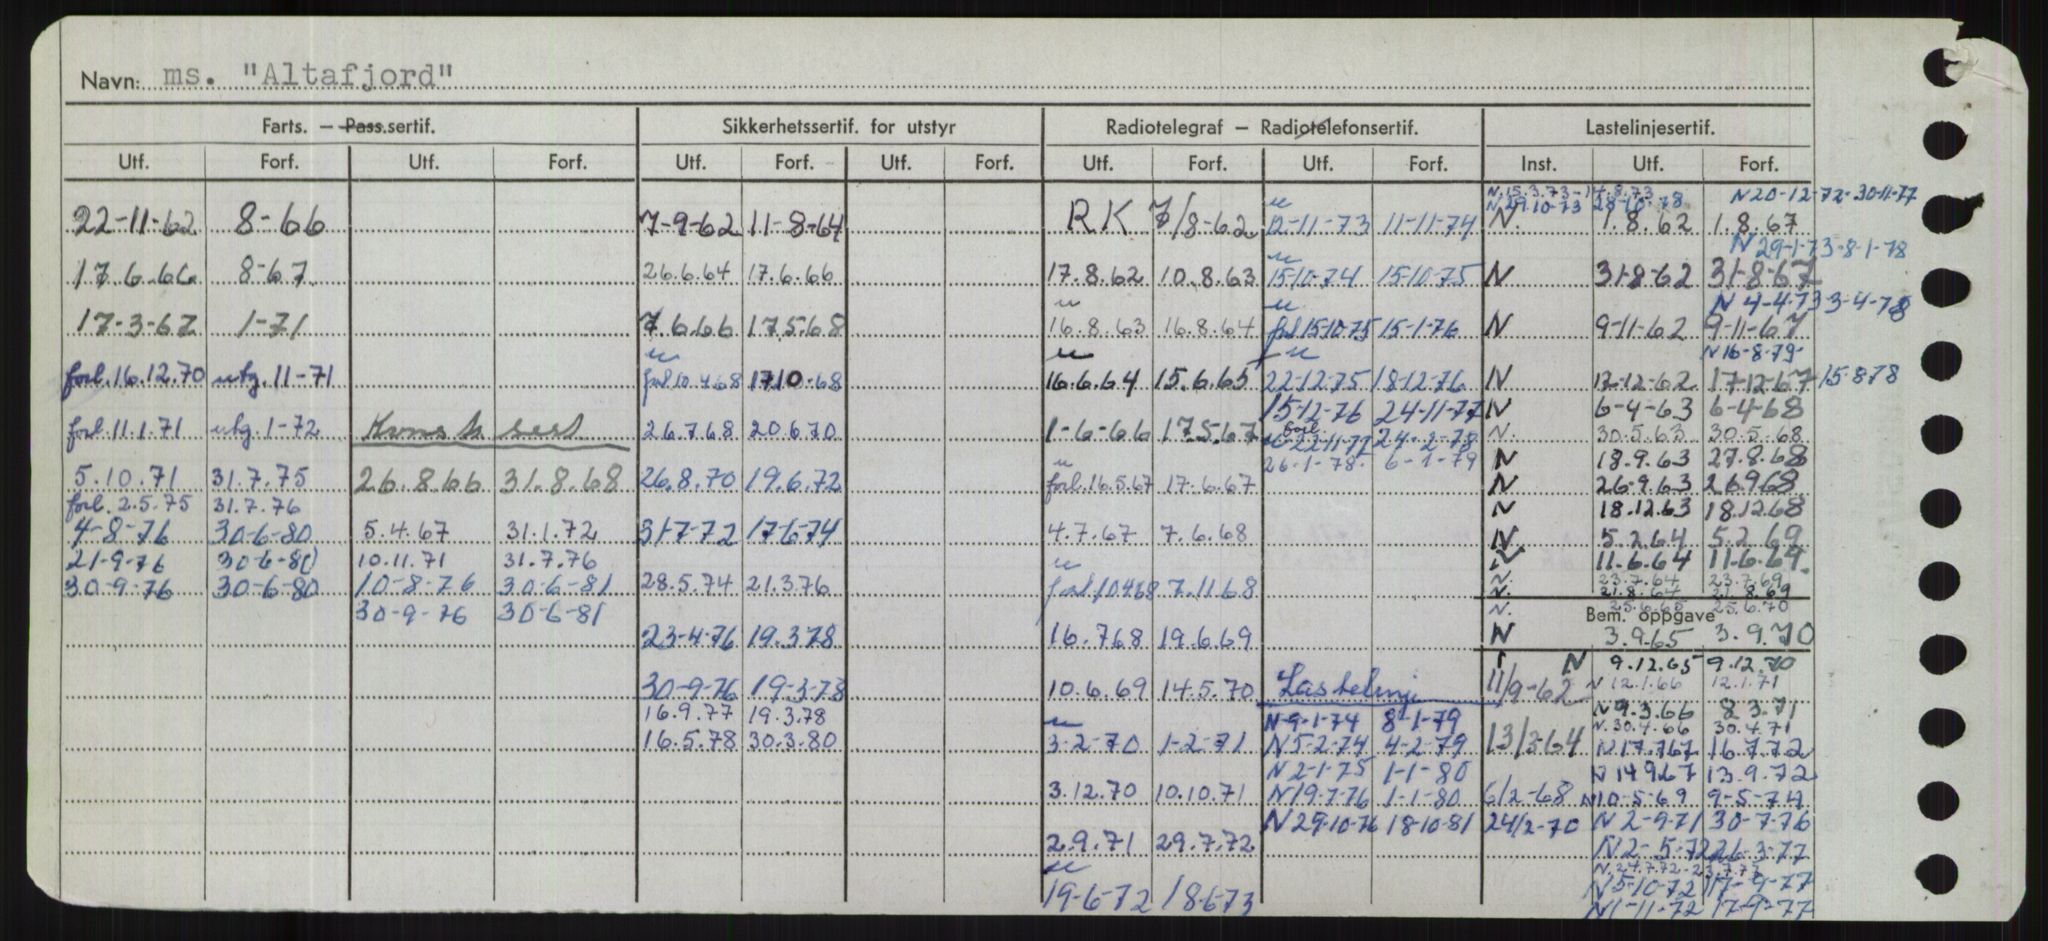 Navn: ms. "Altafjord"
Farts. – Pass.sertif. Sikkerhetssertif. for utstyr Radiotelegraf – Radiotelefonsertif. Lastelinjesertif.
Utf. Forf. Utf. Forf. Utf. Forf. Utf. Forf. Utf. Forf. Utf. Forf. Inst. Utf. Forf.
N.15.3.73-14.8.73 N20-12-72-30-11-77
N.29.10-73 28-10-78
22-11-62 8-66 7-9-62 11-8-64 RK 7/8-62 12-11-73 11-11-74 N. 1.8.62 1.8.67
N 29-1-73-8-1-78
17.6.66 8-67 26.6.64 17.6.66 17.8.62 10.8.63 15-10-74 15-10-75 N 31-8-62 31-8-67
N 4-4-73 3-4-78
17-3-67 1-71 7.6.66 17.5.68 16.8.63 16.8.64 forl 15-10-75 15-1-76 N 9-11-62 9-11-67
N16-8-79-
forl.16.12.70 utg.11-71 forl 10.4.68 17.10-68 16.6.64 15.6.65 22-12-75 18-12-76 N 17-12-62 17-12-67 15-8-78
15-12-76 24-11-77 N 6-4-63 6-4-68
forl.11.1.71 utg.1-72 Konst. sert 26.7.68 20.6.70 1-6-66 17.5.67 forl 22-11-77 24-2-78 N. 30.5.63 30.5.68
26-1-78. 6-1-79 N 18.9.63 27.8.68
5.10.71 31.7.75 26.8.66 31.8.68 26.8.70 19.6.72 forl.16.5.67 17.6.67 N 26.9.63 26.9.68
forl. 2.5.75 31.7.76 N 18.12.63 18.12.68
4-8-76 30-6-80 5.4.67 31.1.72 31-7-72 17-6-74 4.7.67 7.6.68 N 5.2.64 5.2.69
21-9-76 30-6-80 10.11.71 31.7.76 N 11.6.64 11.6.69.
30-9-76 30-6-80 10-8-76 30-6-81 28.5.74 21.3.76 forl 10.4.68 7.11.68 N. 23.7.64 23.7.69
N. 21.8.64 21.8.69
30-9-76 30-6-81 N. 25.6.65 25.6.70
Bem. oppgave
23-4-76 19.3.78 16.7.68 19.6.69 N 3.9.65 3.9.70
N 9.12.65 9.12.70
30-9-76 19-3-78 10.6.69 14.5.70 Lastelinje 11/9-62 N 12.1.66 12.1.71
16.9.77 19.3.78 N-9-1-74 8-1-79 N 9.3.66 8.3.71
N. 30.4.66 30.4.71
16.5.78 30.3.80 3-2-70 1-2-71 N 5-2-74 4-2-79 13/3-64 N 17.7.67 16.7.72
N 2-1-75 1-1-80 N 14.9.67 13.9.72
3.12.70 10.10.71 N 19-7-76 1-1-80 6/2-68 N 10-5-69 9-5-74
N 29-10-76 18-10-81 24/2-70 N 2-9-71 30-7-76
2.9.71 29.7.72 N 2-5-72 26-3-77
N. 24.7.72-23.7.77
19-6-72 18-6-73 N 5-10-72 17-9-77
N 1-11-72 17-9-77